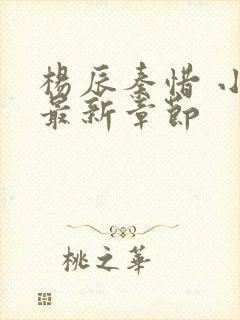 楊辰秦惜 小
最新章節
桃之華